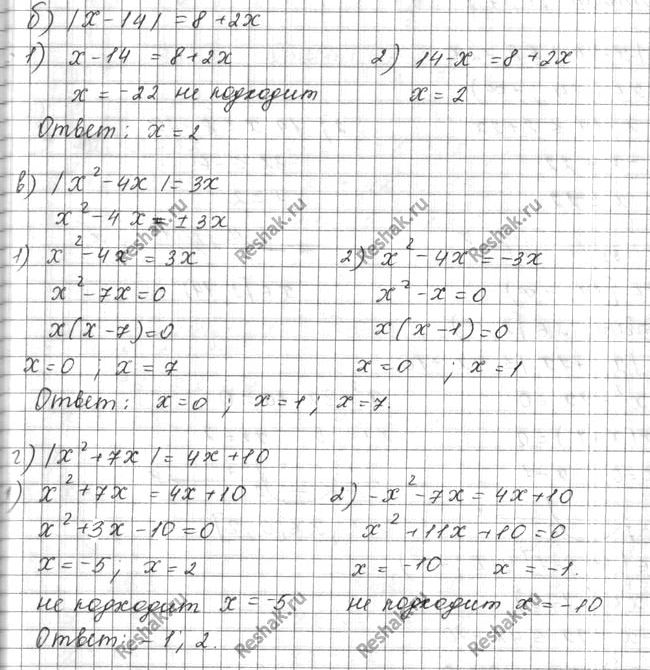 б) |x-14| = 8+2x
1) x-14 = 8+2x 2) 14-x = 8+2x
x = -22 не подходит x = 2
Ответ: x = 2
в) |x²-4x| = 3x
x²-4x = ±3x
1) x²-4x = 3x 2) x²-4x = -3x
x²-7x = 0 x²-x = 0
x(x-7)=0 x(x-1)=0
x=0 ; x=7 x=0 ; x=1
Ответ: x=0 ; x=1 ; x=7.
г) |x²+7x| = 4x+10
1) x²+7x = 4x+10 2) -x²-7x = 4x+10
x²+3x-10=0 x²+11x+10=0
x=-5; x=2 x = -10 x = -1.
не подходит x = -5 не подходит x = -10
Ответ: -1; 2.
Reshak.ru
Reshak.ru
Reshak.ru
Reshak.ru
Reshak.ru
Reshak.ru
Reshak.ru
Reshak.ru